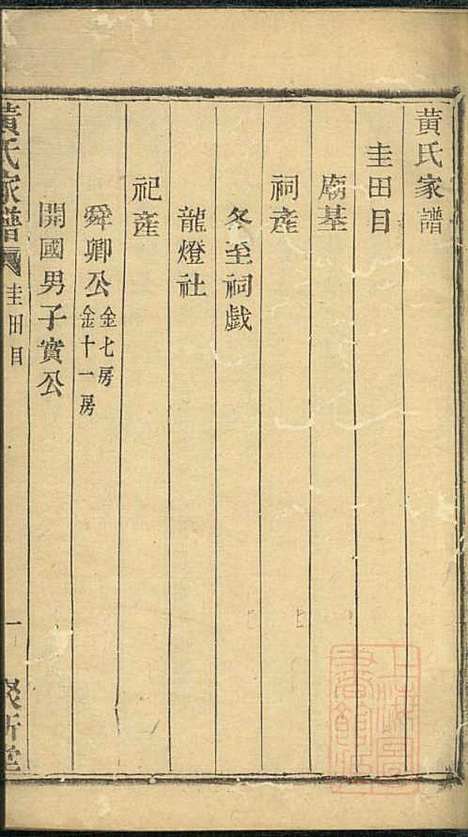 黃氏家譜
圭田目
廟基
祠產
冬至祠戲
龍燈社
祀產
舜卿公金七房金十一房
開國男子實公
黃氏家譜
圭田目
一